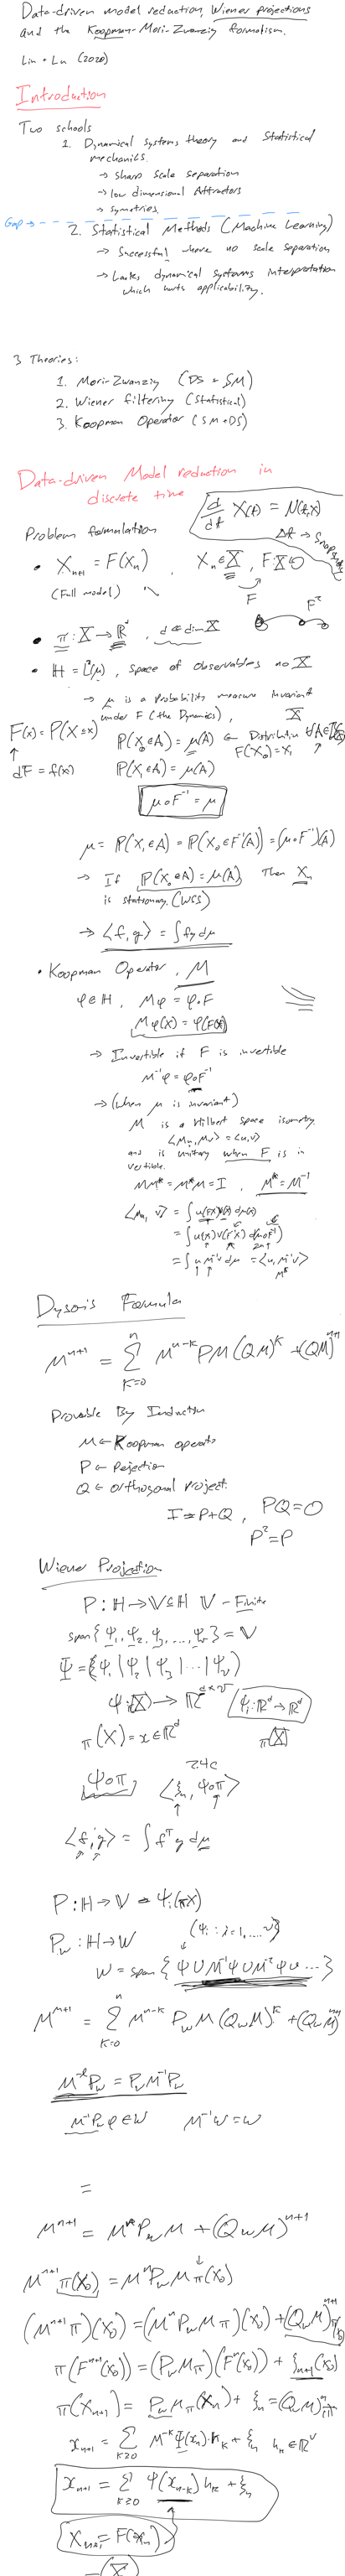 Data-driven model reduction, Wiener projections
and the Koopman-Mori-Zwanzig formalism.
Lin + Lu (2020)
Introduction
Two schools
1. Dynamical systems theory and Statistical
mechanics.
→ sharp scale separation
→ low dimensional Attractors
→ symetries.
Gap →
2. Statistical Methods (Machine Learning)
→ Successful where no scale separation
→ Lacks dynamical systems interpretation
which hurts applicability.
3 Theories:
1. Mori-Zwanzig (DS + SM)
2. Wiener filtering (Statistical)
3. Koopman Operator (SM + DS)
Data-driven Model reduction in
discrete time
d/dt X(t) = N(t,X)
Δt →
Problem formulation
• X_{n+1} = F(X_n) , X_n ∈ 𝕏 , F: 𝕏
(Full model)
F
F²
• π: 𝕏 → ℝ^d , d ≪ dim 𝕏
• ℍ = L²(μ) , space of observables on 𝕏
→ μ is a Probability measure invariant
under F (the Dynamics),
F(x) = P(X ≤ x)
ℙ(X_0 ∈ A) = μ(A) ← Distribution
F(X_0) = X_1
dF = f(x)
ℙ(X_1 ∈ A) = μ(A)
μ∘F⁻¹ = μ
μ = ℙ(X_1 ∈ A) = ℙ(X_0 ∈ F⁻¹(A)) = (μ∘F⁻¹)(A)
→ If ℙ(X_0 ∈ A) = μ(A), Then X_n
is stationary. (WSS)
→ ⟨f, g⟩ = ∫ fg dμ
• Koopman Operator, M
φ ∈ ℍ , Mφ = φ∘F
Mφ(X) = φ(F(X))
→ Invertible if F is invertible
M⁻¹φ = φ∘F⁻¹
→ (when μ is invariant)
M is a Hilbert space isometry.
⟨Mu, Mv⟩ = ⟨u,v⟩
and is unitary when F is in
vertible.
MM* = M*M = I , M* = M⁻¹
⟨Mu, v⟩ = ∫ u(F(X)) v(X) dμ(X)
= ∫ u(X) v(F⁻¹X) d(μ∘F⁻¹)
= ∫ u M⁻¹v dμ = ⟨u, M⁻¹v⟩
M*
Dyson's Formula
M^{n+1} = Σ_{k=0}^{n} M^{n-k} PM (QM)^k + (QM)^{n+1}
Provable By Induction
M ← Koopman operato
P ← Pojection
Q ← orthogonal project.
I = P + Q , PQ = 0
P² = P
Wiener Projection
P: ℍ → 𝕍 ⊆ ℍ 𝕍 - Finite
span{ψ_1, ψ_2, ψ_3, ..., ψ_ν} = 𝕍
Ψ = (ψ_1 | ψ_2 | ψ_3 | ... | ψ_ν)
ψ: π(𝕏) → ℝ^{d×ν} ψ_i: ℝ^d → ℝ^d
π(X) = x ∈ ℝ^d π(𝕏)
2.4c
ψ∘π ⟨ξ_n, ψ∘π⟩
⟨f, g⟩ = ∫ f^T g dμ
P: ℍ → 𝕍 = ψ_i(πX)
(ψ_i : i = 1, ..., ν}
P_w: ℍ → W
W = span{ψ ∪ M⁻¹ψ ∪ M⁻²ψ ∪ ...}
M^{n+1} = Σ_{k=0}^{n} M^{n-k} P_w M (Q_w M)^k + (Q_w M)^{n+1}
M^{-1} P_w = P_w M^{-1} P_w
M⁻¹P_w φ ∈ W M⁻¹W = W
=
M^{n+1} = M^n P_w M + (Q_w M)^{n+1}
M^{n+1} π(X_0) = M^n P_w M π(X_0)
(M^{n+1} π)(X_0) = (M^n P_w M π)(X_0) + (Q_w M)^{n+1} π(X_0)
π(F^{n+1}(X_0)) = (P_w M π)(F^n(X_0)) + ξ_{n+1}(X_0)
π(X_{n+1}) = P_w M π(X_n) + ξ_n = (Q_w M)^n π
x_{n+1} = Σ_{k≥0} M^{-k} Ψ(x_n)·h_k + ξ_n h_k ∈ ℝ^ν
x_{n+1} = Σ_{k≥0} ψ(x_{n-k}) h_k + ξ_n
X_{n+1} = F(X_n)